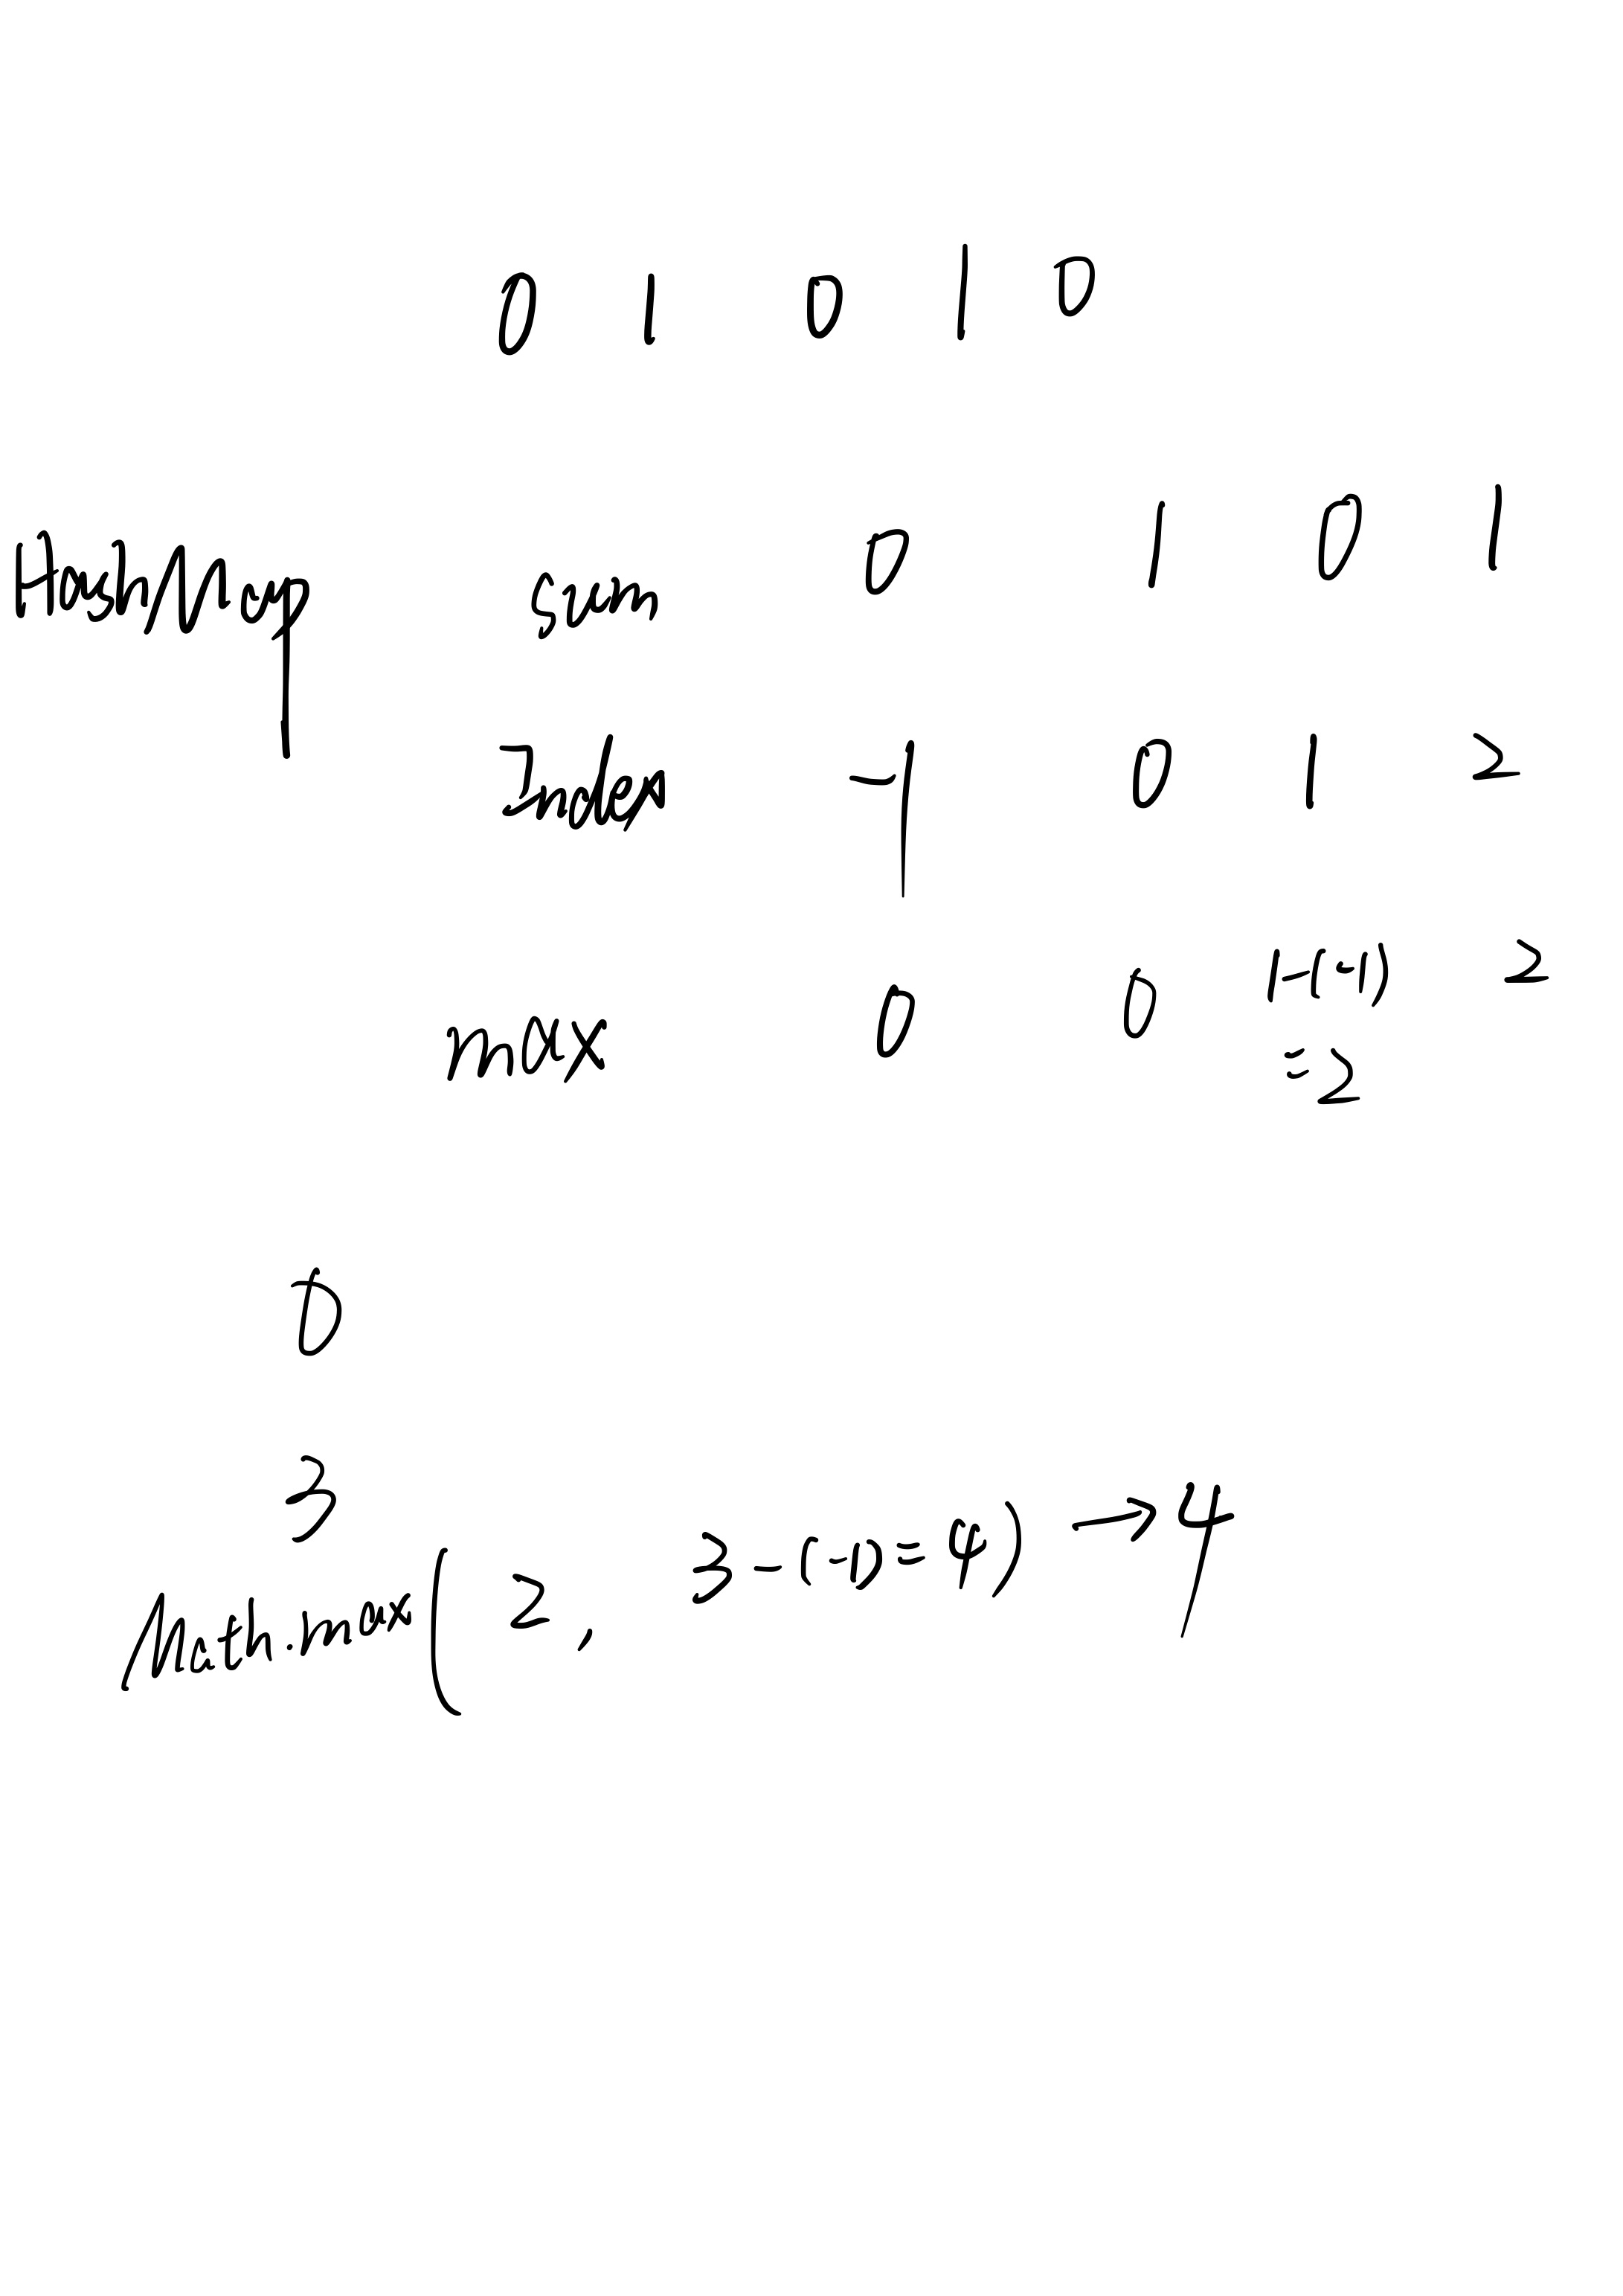 0 1 0 1 0
HashMap sum 0 1 0 1
Index -1 0 1 2
max 0 0 1-(-1) 2
=2
0
3
Math.max( 2, 3-(-1)=4) →4